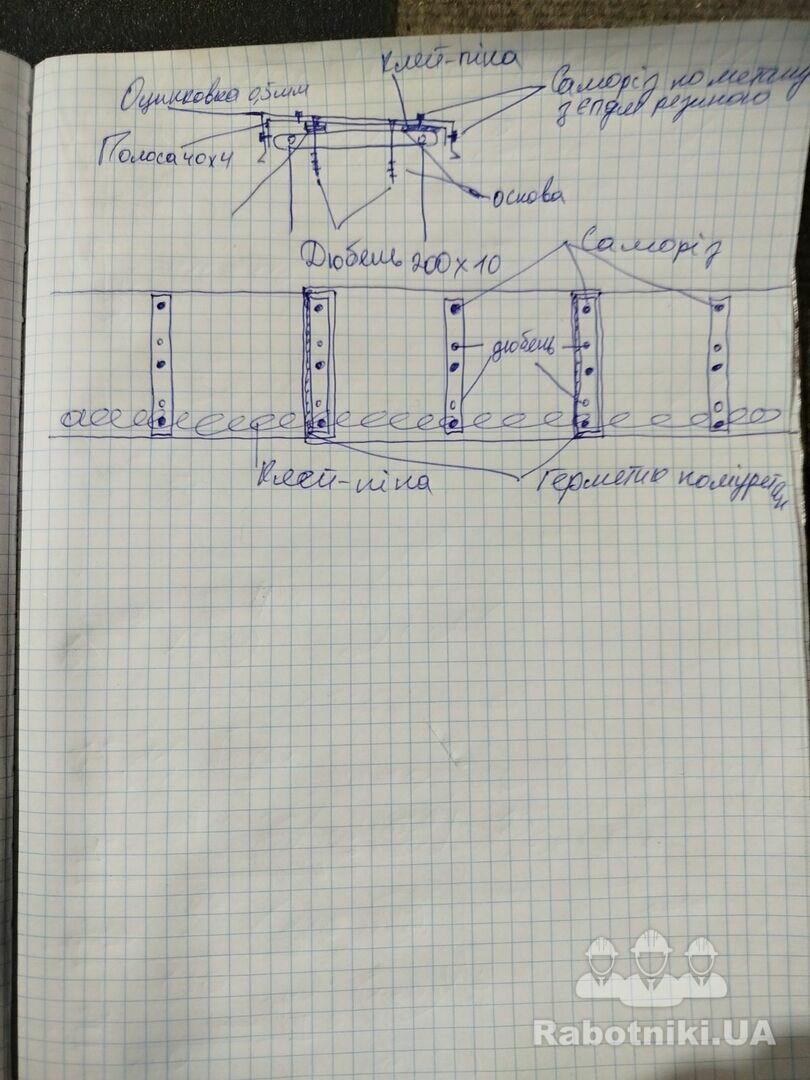 Клей-піна
Оцинковка 0,5мм
Саморіз по металу
з епдм резиною
Полоса 40х4
основа
Дюбель 200х10
Саморіз
дюбель
Клей-піна
Герметик поліуретан
Rabotniki.UA